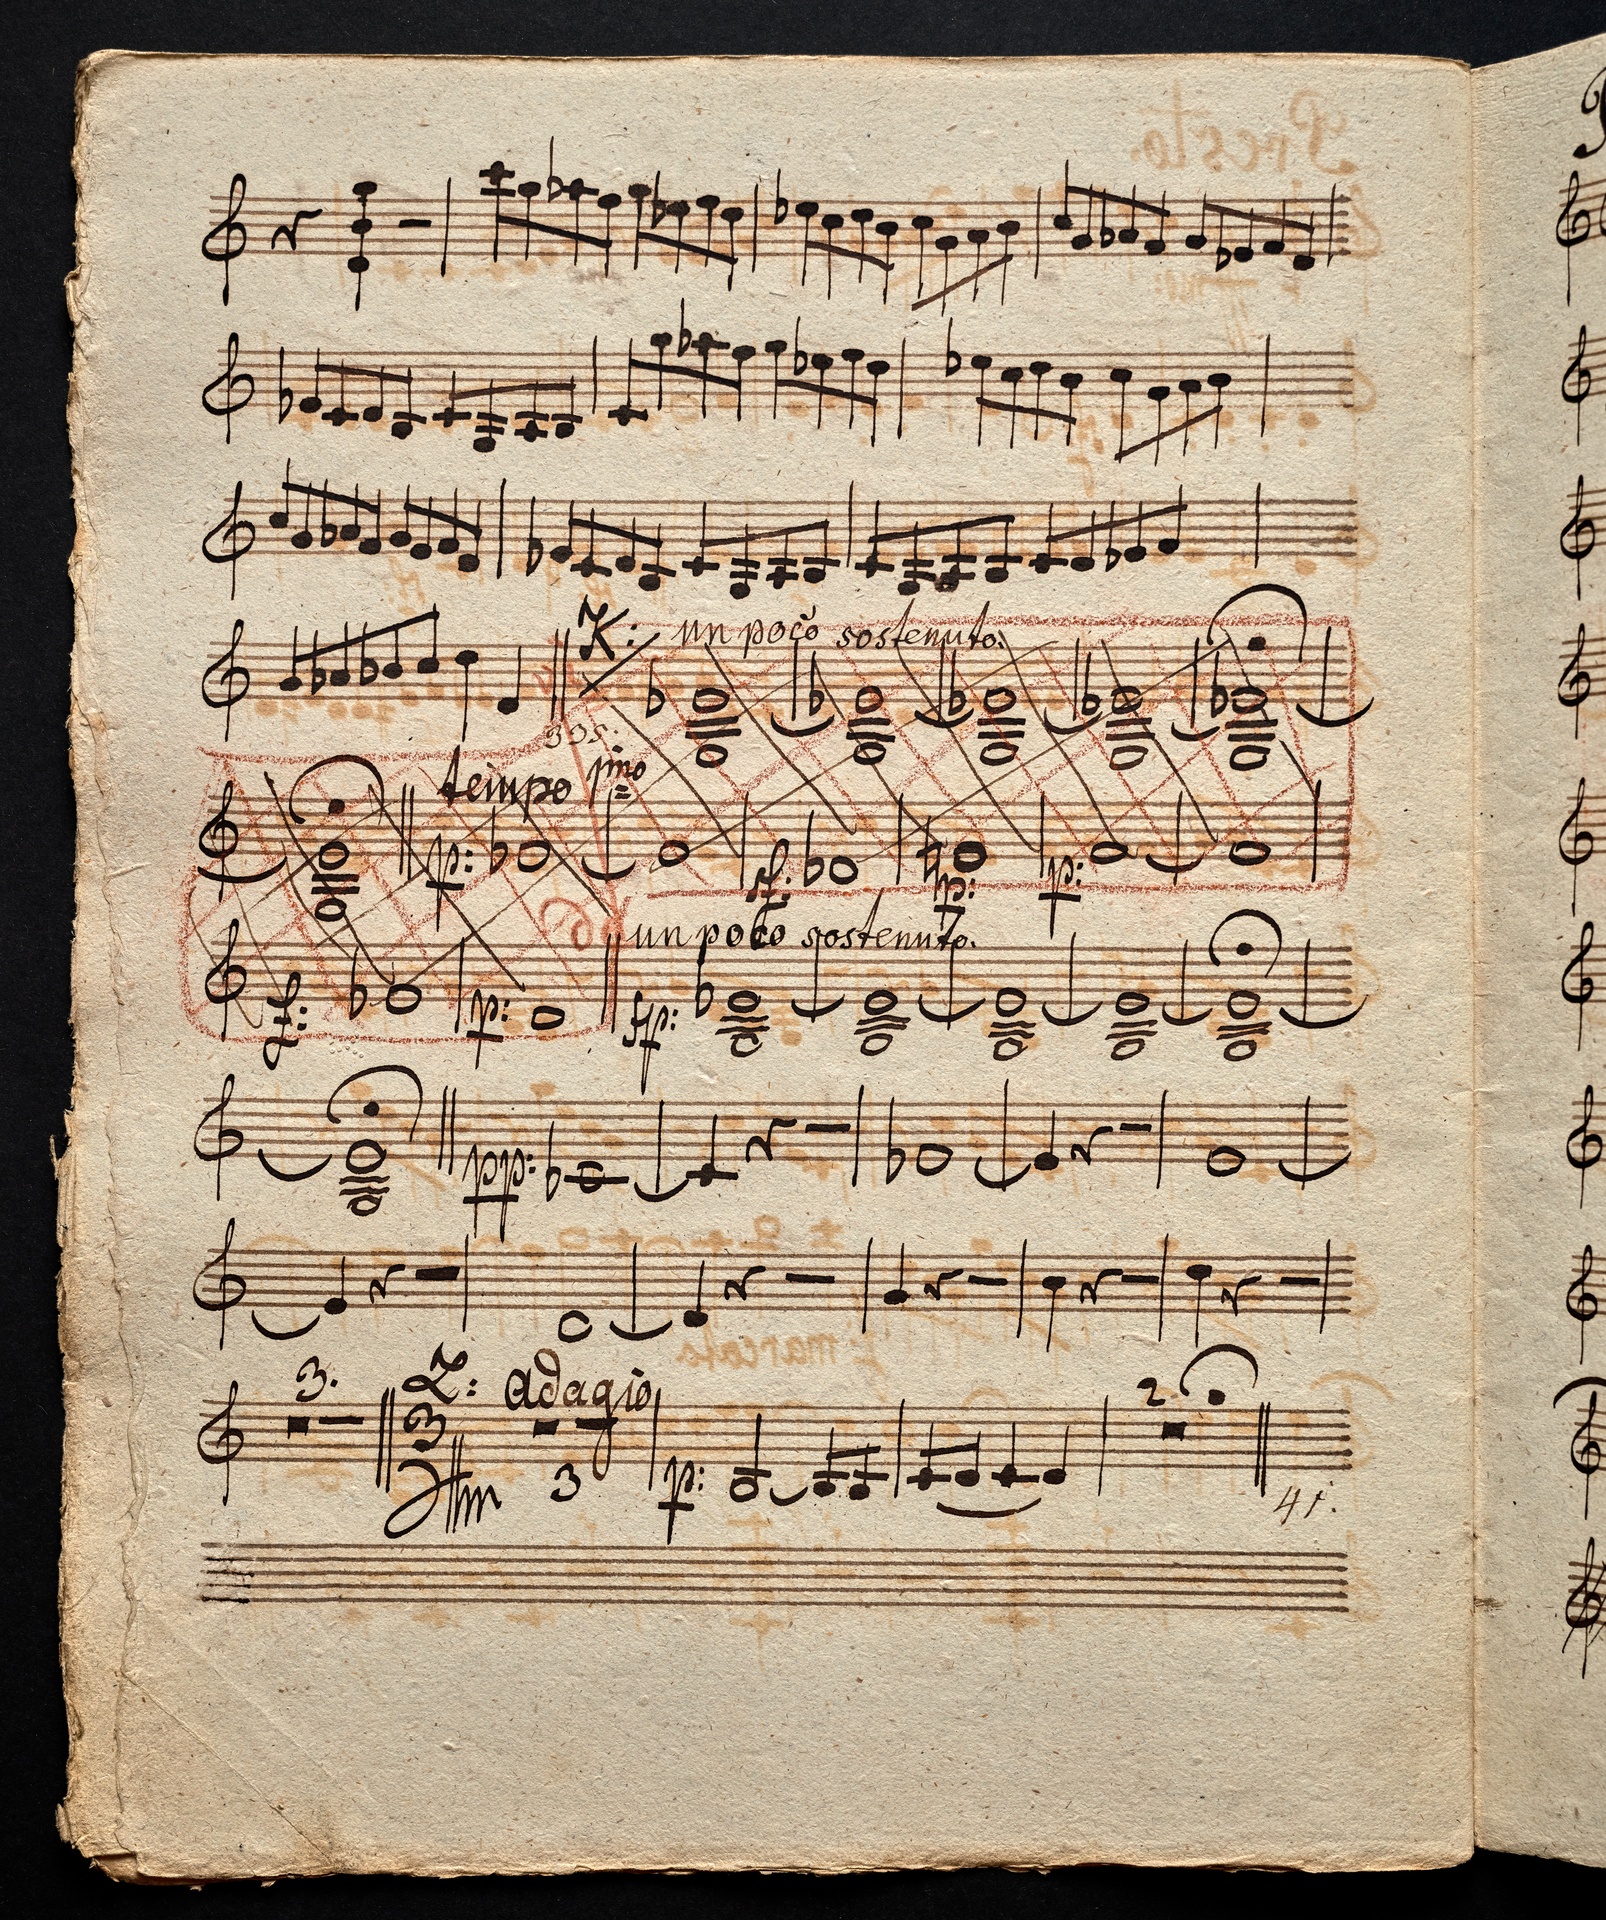 K: un poco sostenuto.
305.
tempo pmo
p: sf: p: p:
un poco sostenuto.
f: p: fp:
pp:
3. L: adagio 2.
3
3 p:
41.